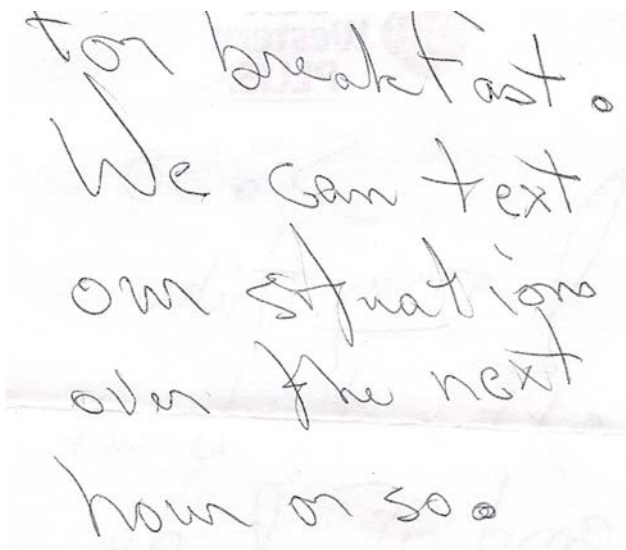 for breakfast.
We can text
our situations
over the next
hour or so.